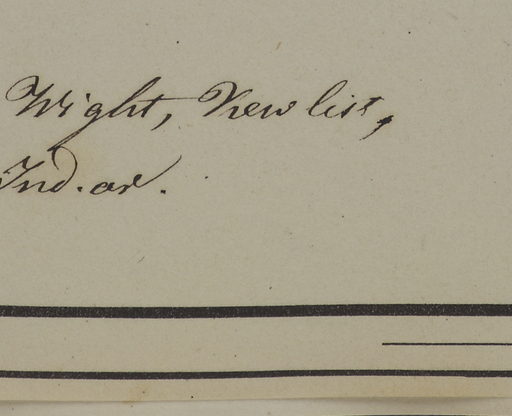 Wight, New list,
Ind. or.